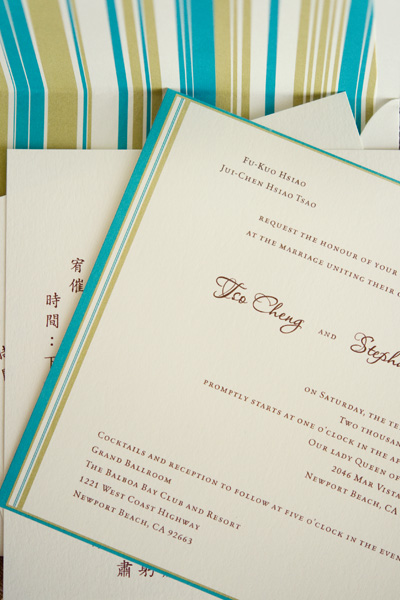 Fu-Kuo Hsiao
Jui-Chen Hsiao Tsao
request the honour of your
at the marriage uniting their
Tso Cheng and
on Saturday, the
Two thousan
promptly starts at one o'clock in the
Our Lady Queen of
2046 Mar Vista
Newport Beach, CA
Cocktails and reception to follow at five o'clock in the
Grand Ballroom
The Balboa Bay Club and Resort
1221 West Coast Highway
Newport Beach, CA 92663
宥
催
時
間
：
下
肅
躬